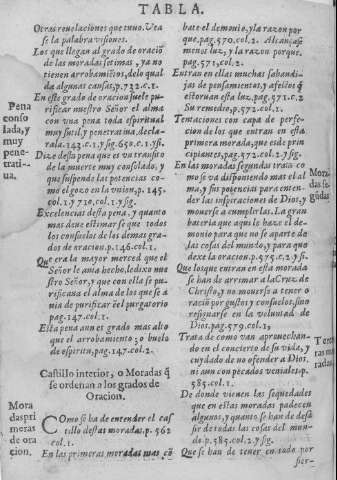 TABLA.
Otras reuelaciones que tuuo. Vea
se la palabra visiones.
Los que llegan al grado de oració
de las moradas setimas, ya no
tienen arrobamiẽtos, de lo qual
da algunas causas, p.732.c.1.
En este grado de oracion suele pu-
rificar nuestro Señor el alma
con vna pena toda espiritual
muy sutil, y penetratiua, decla-
rala. 143.c.1. y sig. 650.c.1. y si.
Pena
conso
lada, y
muy
pene-
trati-
ua.
Dize desta pena que es vn transito
de la muerte muy consolado, y
que suspende las potencias co-
mo el gozo en la vnion, p. 145.
col.1. y 720, col.1. y sig.
Excelencias desta pena, y quanto
mas deue estimarse que todos
los consuelos de los demas gra-
dos de oracion. p.146.col.1.
Que era la mayor merced que el
Señor le auia hecho, le dixo nue
stro Señor, y que con ella se pu-
rificaua el alma de los que se a-
uia de purificar en el purgatorio
pag.147.col.1.
Esta pena aun es grado mas alto
que el arrobamiento; o buelo
de espiritu, pag.147.col.2.
Castillo interior, o Moradas q̃
se ordenan a los grados de
Oracion.
Mora
das pri
meras
de ora
cion.
Como se ha de entender el cas
tillo destas moradas. p. 562
col.1.
En las primeras moradas mas cõ
bate el demonio, y la razon por
que. pag.570.col.2. Alcançase
menos luz, y la razon porque.
pag.571, col.2.
Entran en ellas muchas sabandi-
jas de pensamientos, y afectos q̃
estoruan esta luz. pag.571.c.2
Su remedio, p.572.col.1.
Tentaciones con capa de perfe-
cion de los que entran en esta
primera morada, que es de prin
cipiantes, pag.572.col.2. y sig.
En las moradas segundas trata co
mo se va disponiendo mas el al
ma, y sus potencias para enten-
der las inspiraciones de Dios, y
mouerse a cumplirlas. La gran
bateria que aqui le haze el de-
monio para que no se aparte de
las cosas del mundo, y para que
dexe la oracion. p.575.c.2. y si.
Mora
das se
gũdas
Que los que entran en esta morada
se han de arrimar a la Cruz de
Christo, y no mouerse a tener o
racio por gustos y consuelos, sino
resignarse en la voluntad de
Dios, pag.579, col.1.
Trata de como van aprouechan-
do en el concierto de su vida, y
cuydado de no ofender a Dios,
ni aun con pecados veniales. p.
585.col.1.
De donde vienen las sequedades
que en estas moradas padecen
algunos, y quanto se han de desa
sir de todas las cosas del mun-
do. p.585.col.2. y sig.
Que se han de tener en todo por
sier-